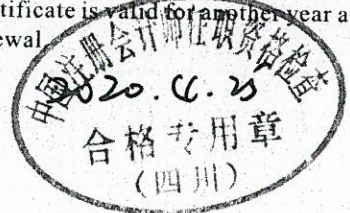 tificate is valid for another year a
ewal
中国注册会计师任职资格检查
2020.4.23
合格专用章
（四川）